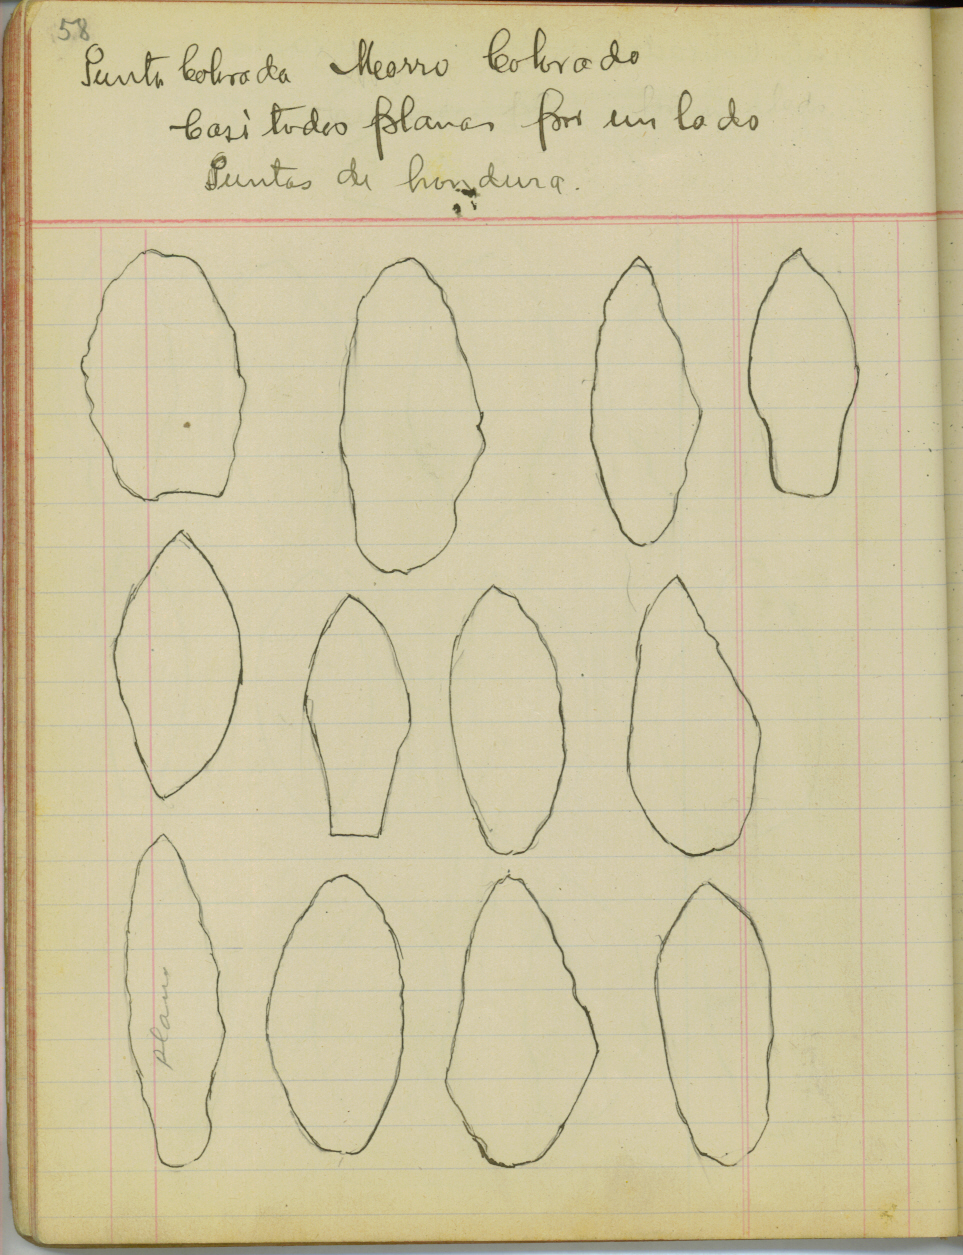 58
Punta Colorada Morro Colorado
Casi todos planas por un lado
Puntas de hondura.
plano